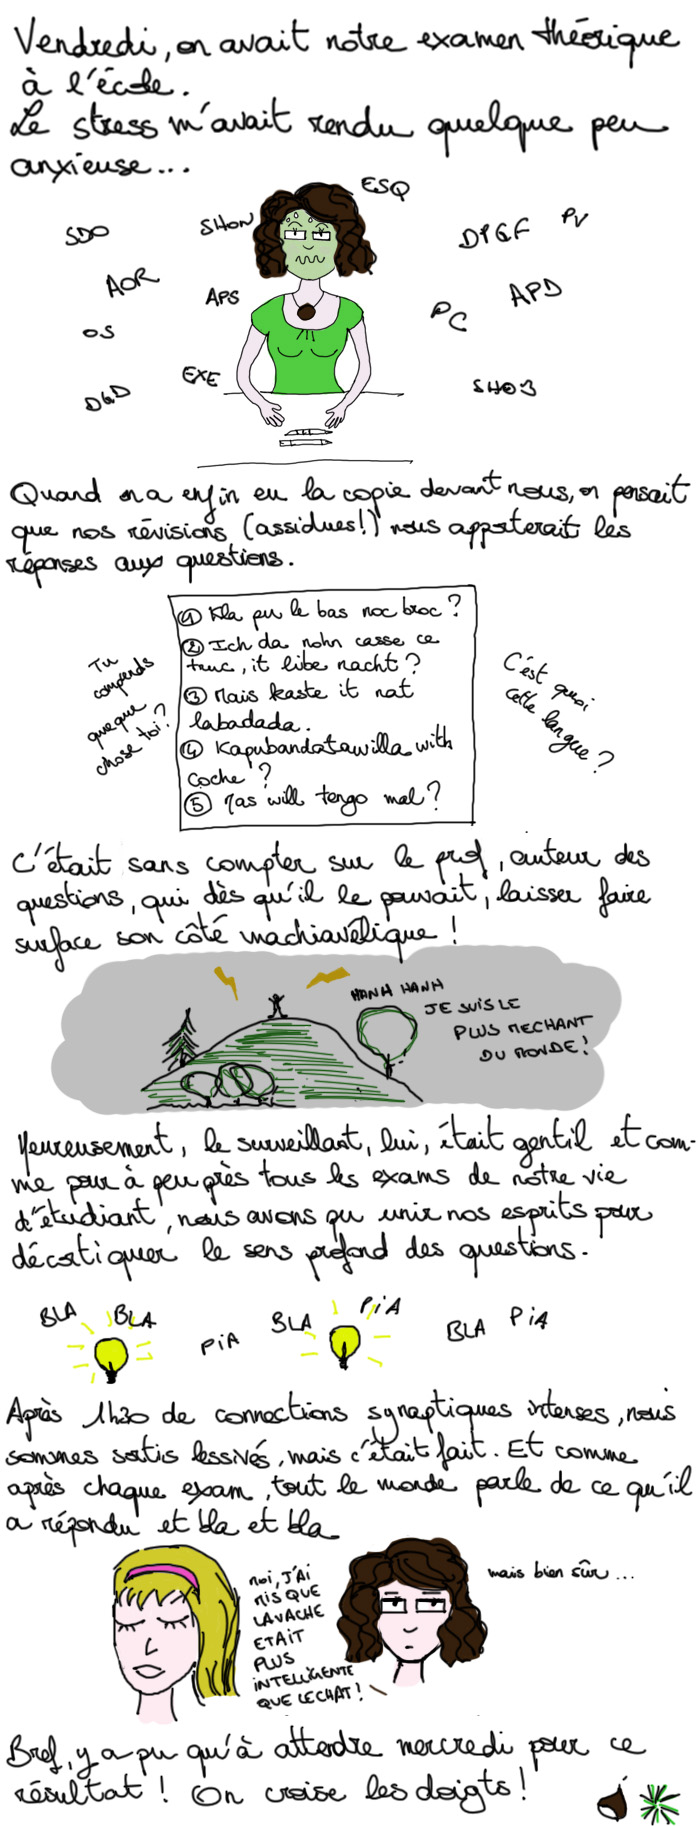 Vendredi, on avait notre examen théorique
à l'école.
Le stress m'avait rendu quelque peu
anxieuse...
ESQ
SDO
SHON
DPGF
PV
AOR
APS
APD
PC
OS
EXE
DGD
SHOB
Quand on a enfin eu la copie devant nous, on pensait
que nos révisions (assidues!) nous apporterait les
réponses aux questions.
Tu
comprends
queque
chose toi?
① Kla pur le bas noc broc?
② Ich da nohn casse ce
truc, it libe nacht?
③ Mais kaste it nat
labadada.
④ Kapubandatawilla with
coche?
⑤ Mas will tengo mal?
C'est quoi
cette langue?
C'était sans compter sur le prof, auteur des
questions, qui dès qu'il le pouvait, laisser faire
surface son côté machiavélique!
HANH HANH
JE SUIS LE
PLUS MECHANT
DU MONDE!
Heureusement, le surveillant, lui, était gentil et com-
me pour à peu près tous les exams de notre vie
d'étudiant, nous avons pu unir nos esprits pour
décortiquer le sens profond des questions.
BLA BLA
PiA
BLA PiA
BLA PiA
Après 1h30 de connections synaptiques intenses, nous
sommes sortis lessivés, mais c'était fait. Et comme
après chaque exam, tout le monde parle de ce qu'il
a répondu et bla et bla
MOI, J'AI
MIS QUE
LA VACHE
ETAIT
PLUS
INTELLIGENTE
QUE LE CHAT!
mais bien sûr...
Bref, y a pu qu'à attendre mercredi pour ce
résultat! On croise les doigts!